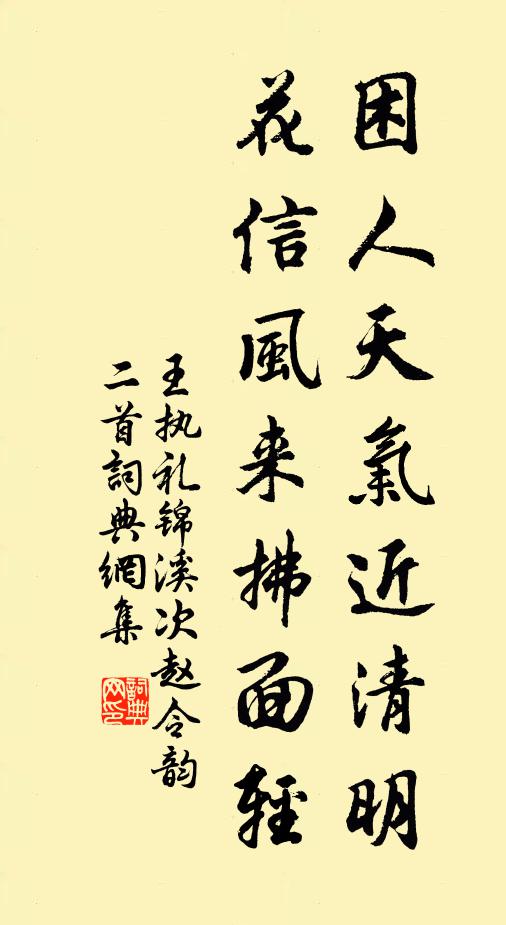 困人天氣近清明
花信風来拂面輕
王执礼锦溪次赵令韵
二首詞典網集
詞典网印